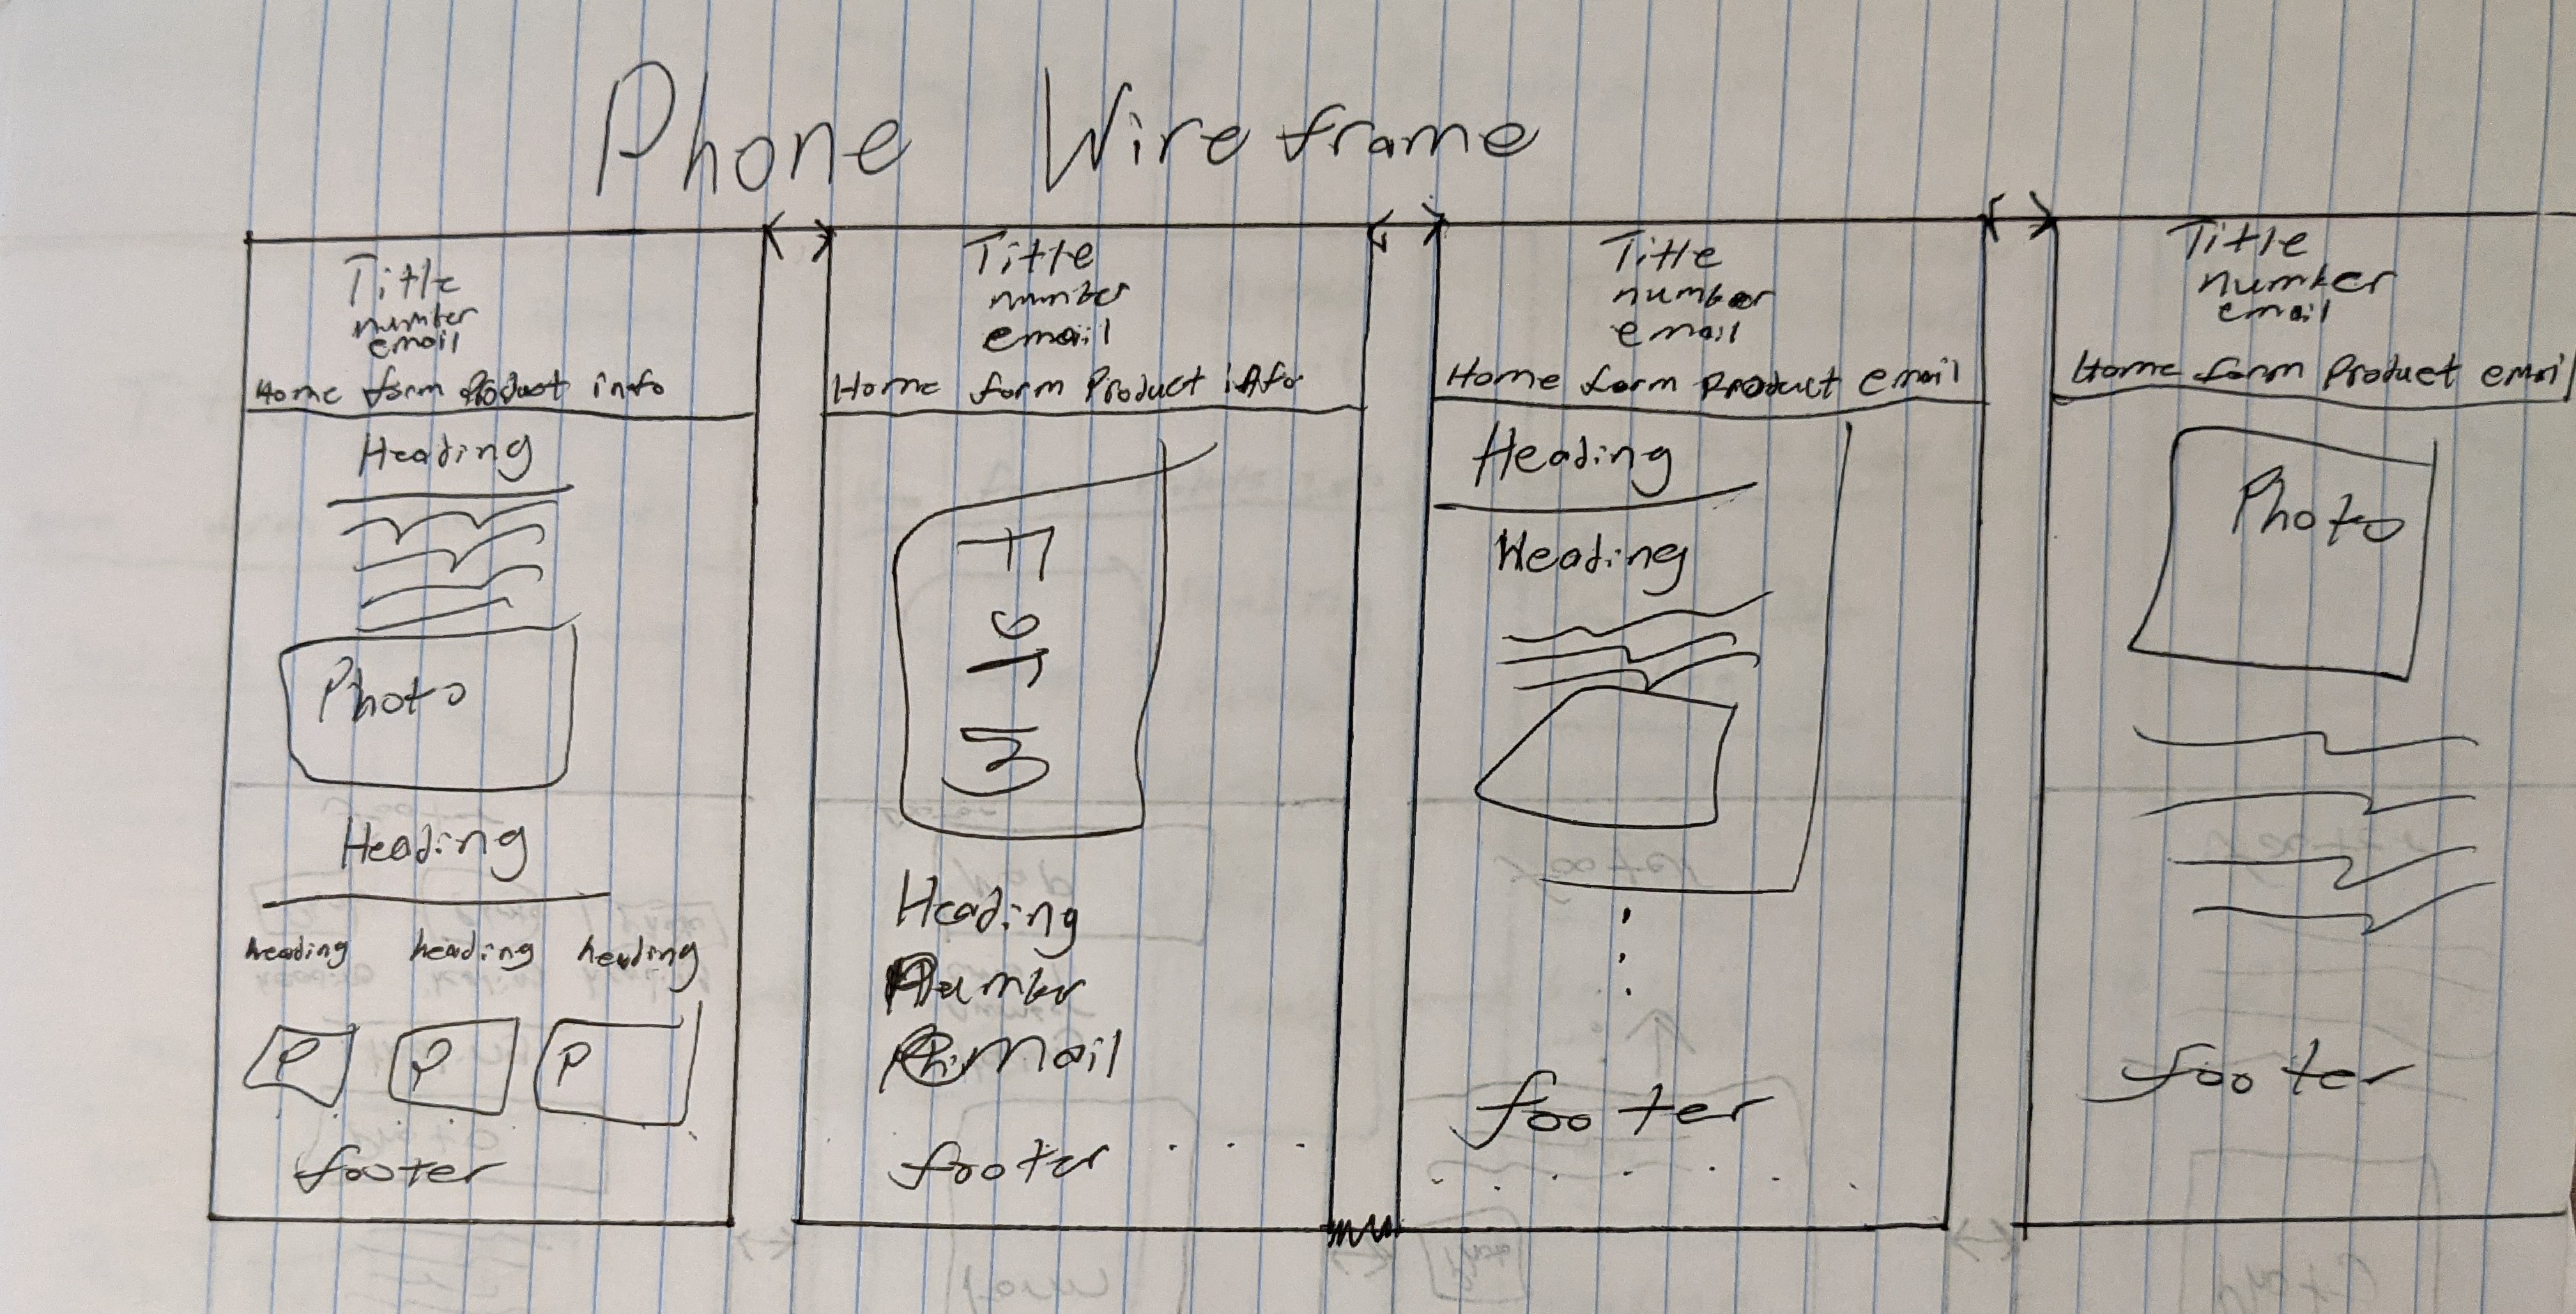 Phone Wireframe
Title
number
email
Home form Product info
Heading
Photo
Heading
heading heading heading
P P P
footer
Title
number
email
Home form Product info
Form
Heading
Number
Mail
footer
Title
number
email
Home form Product email
Heading
Heading
footer
Title
number
email
Home form Product email
Photo
footer